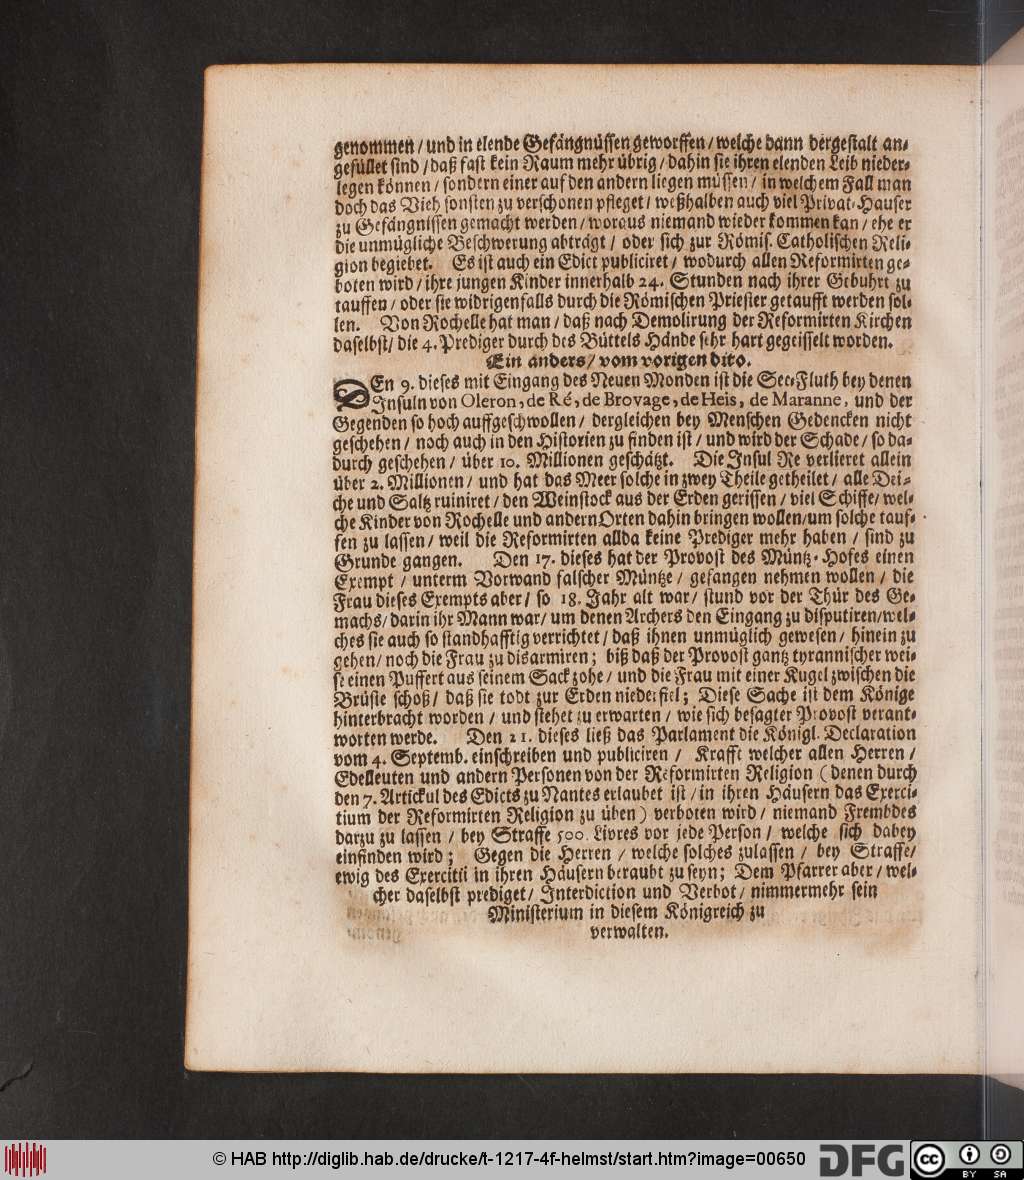 genommen / und in elende Gefängnüssen geworffen / welche dann dergestalt an-
gefüllet sind / daß fast kein Raum mehr übrig / dahin sie ihren elenden Leib nieder-
legen können / sondern einer auf den andern liegen müssen / in welchem Fall man
doch das Vieh sonsten zu verschonen pfleget / weßhalben auch viel Privat-Hauser
zu Gefängnissen gemacht werden / woraus niemand wieder kommen kan / ehe er
die unmügliche Beschwerung abträgt / oder sich zur Römis. Catholischen Reli-
gion begiebet. Es ist auch ein Edict publiciret / wodurch allen Reformirten ge-
boten wird / ihre jungen Kinder innerhalb 24. Stunden nach ihrer Gebuhrt zu
tauffen / oder sie widrigenfalls durch die Römischen Priester getaufft werden sol-
len. Von Rochelle hat man / daß nach Demolirung der Reformirten Kirchen
daselbst / die 4. Prediger durch des Büttels Hände sehr hart gegeisselt worden.
Ein anders / vom vorigen dito.
DEn 9. dieses mit Eingang des Neuen Monden ist die See-Fluth bey denen
Insuln von Oleron, de Ré, de Brovage, de Heis, de Maranne, und der
Gegenden so hoch auffgeschwollen / dergleichen bey Menschen Gedencken nicht
geschehen / noch auch in den Historien zu finden ist / und wird der Schade / so da-
durch geschehen / über 10. Millionen geschätzt. Die Insul Re verlieret allein
über 2. Millionen / und hat das Meer solche in zwey Theile getheilet / alle Dei-
che und Saltz ruiniret / den Weinstock aus der Erden gerissen / viel Schiffe / wel-
che Kinder von Rochelle und andern Orten dahin bringen wollen / um solche tauf-
fen zu lassen / weil die Reformirten allda keine Prediger mehr haben / sind zu
Grunde gangen. Den 17. dieses hat der Provost des Müntz-Hofes einen
Exempt / unterm Vorwand falscher Müntze / gefangen nehmen wollen / die
Frau dieses Exempts aber / so 18. Jahr alt war / stund vor der Thür des Ge-
machs / darin ihr Mann war / um denen Archers den Eingang zu disputiren / wel-
ches sie auch so standhafftig verrichtet / daß ihnen unmüglich gewesen / hinein zu
gehen / noch die Frau zu disarmiren; biß daß der Provost gantz tyrannischer wei-
se einen Puffert aus seinem Sack zohe / und die Frau mit einer Kugel zwischen die
Brüste schoß / daß sie todt zur Erden niederfiel; Diese Sache ist dem Könige
hinterbracht worden / und stehet zu erwarten / wie sich besagter Provost verant-
worten werde. Den 21. dieses ließ das Parlament die Königl. Declaration
vom 4. Septemb. einschreiben und publiciren / Krafft welcher allen Herren /
Edelleuten und andern Personen von der Reformirten Religion ( denen durch
den 7. Artickul des Edicts zu Nantes erlaubet ist / in ihren Häusern das Exerci-
tium der Reformirten Religion zu üben ) verboten wird / niemand Frembdes
darzu zu lassen / bey Straffe 500. Livres vor jede Person / welche sich dabey
einfinden wird; Gegen die Herren / welche solches zulassen / bey Straffe /
ewig des Exercitii in ihren Häusern beraubt zu seyn; Dem Pfarrer aber / wel-
cher daselbst prediget / Interdiction und Verbot / nimmermehr sein
Ministerium in diesem Königreich zu
verwalten.
© HAB http://diglib.hab.de/drucke/t-1217-4f-helmst/start.htm?image=00650
DFG
cc BY SA